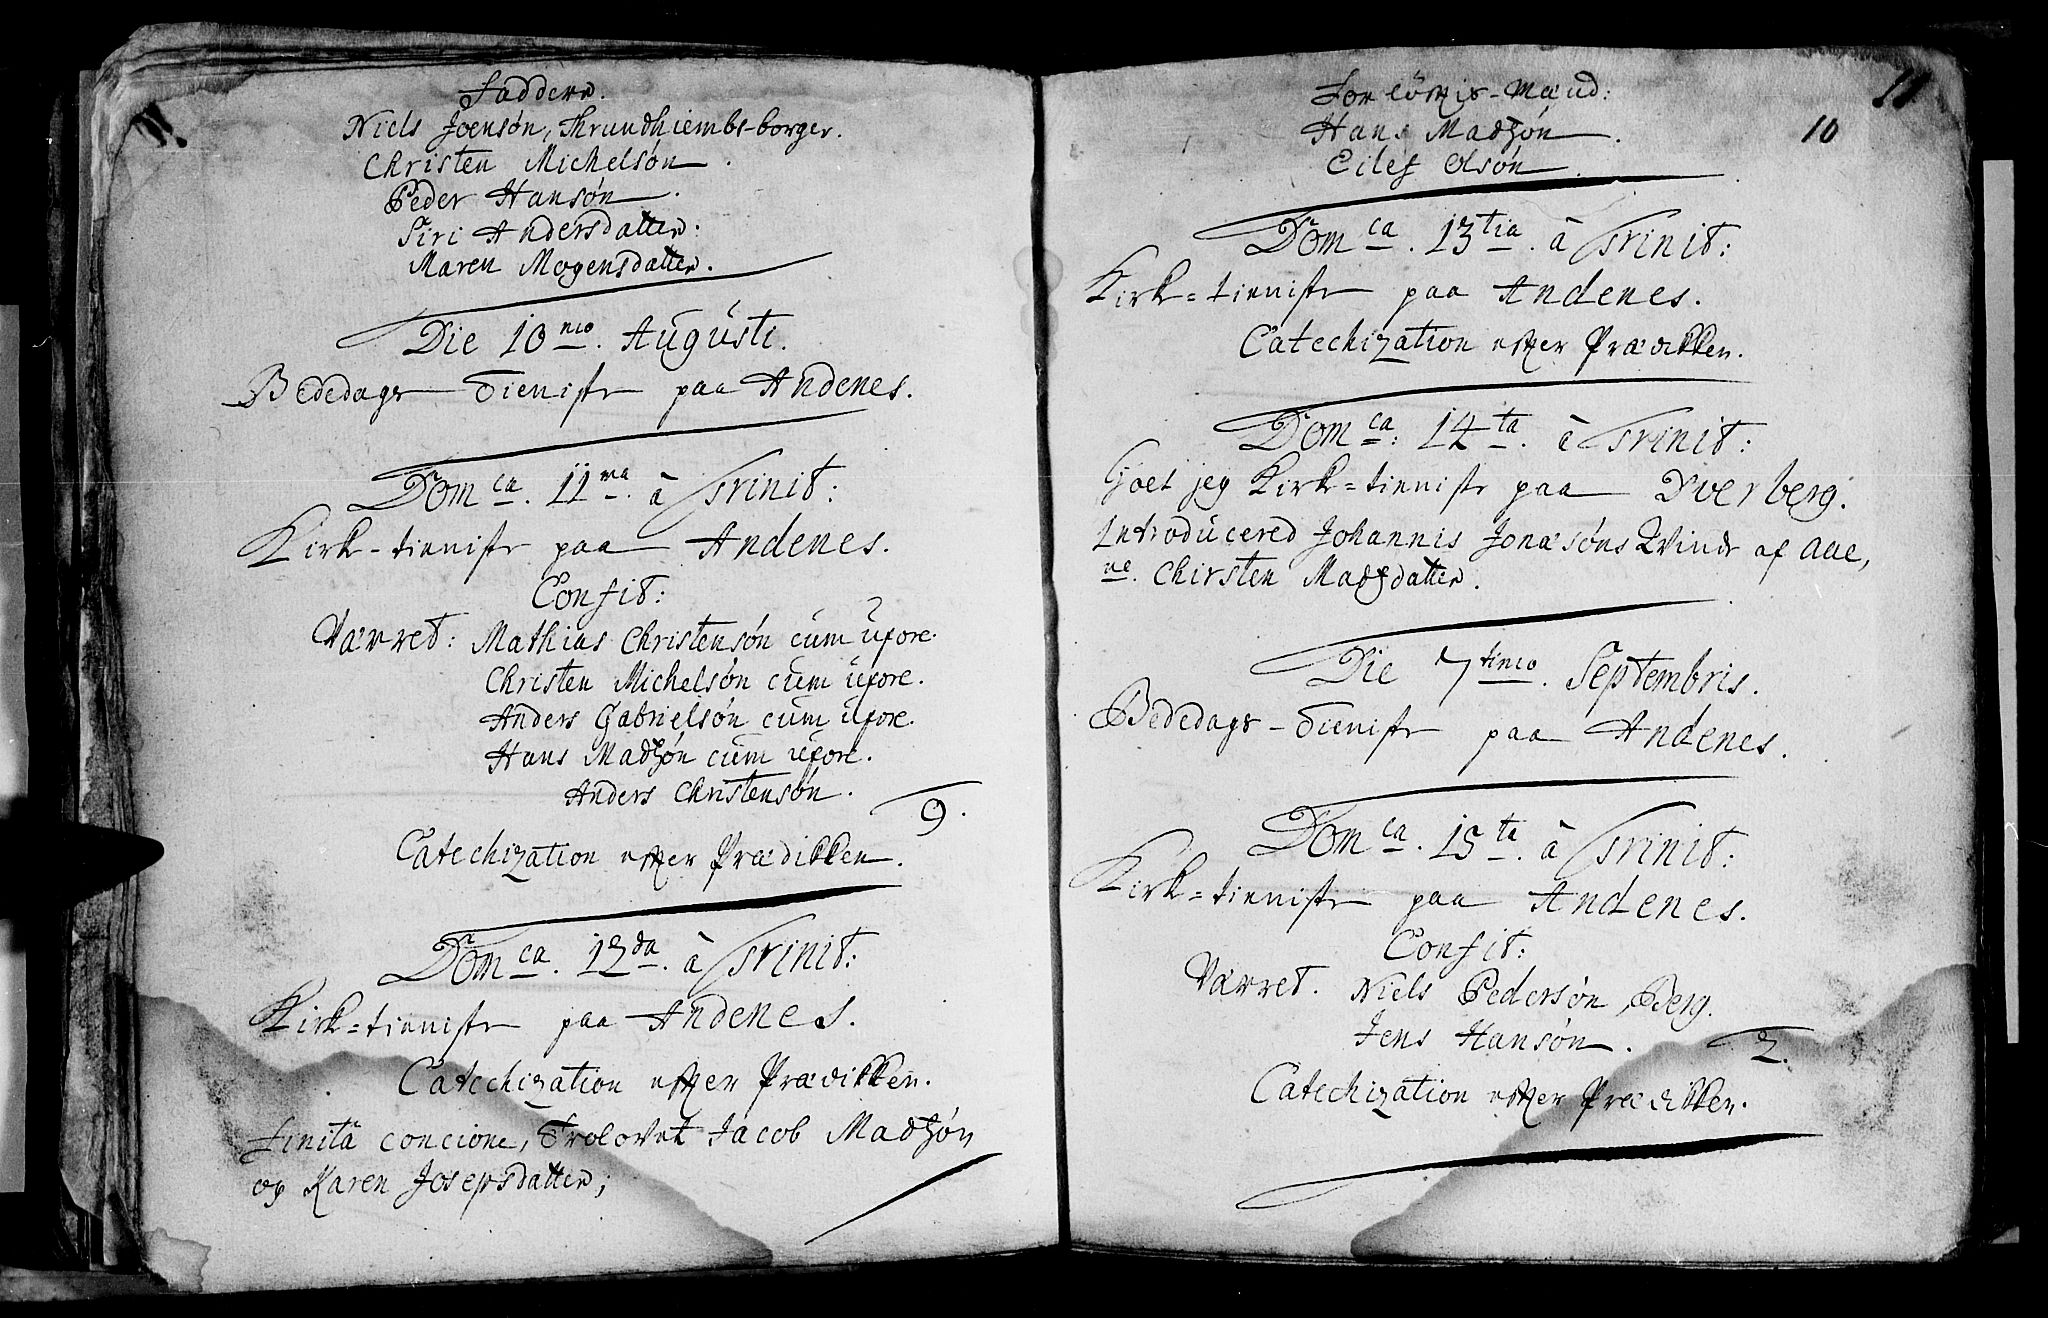 Faddere.
Niels Joensøn, Thrundhiembs-borger.
Christen Michelsøn.
Peder Hansøn.
Siri Andersdatter:
Maren Mogensdatter.
Die 10 mo. Augusti.
Bededags-Tieniste paa Andenes.
Dom ca. 11 ma. à Trinit:
Kirke-tieniste paa Andenes.
Confit:
Værret: Mathias Christensøn cum uxore.
Christen Michelsøn cum uxore.
Anders Gabrielsøn cum uxore.
Hans Madzøn cum uxore.
Anders Christensøn.
9.
Catechization efter Prædikken.
Dom ca. 12 da. à Trinit:
Kirke-tieniste paa Andenes.
Catechization efter Prædikken.
Finitâ concione, Trolovet Jacob Madzøn
og Karen Josepsdatter;
11
10
Forløftis-Mænd:
Hans Madzøn.
Eilef Olsøn.
Dom ca. 13 tia. à Trinit:
Kirke=tieniste paa Andenes.
Catechization efter Prædikken.
Dom ca: 14 ta. à Trinit:
Holt jeg Kirke=tieniste paa Dverberg.
Introducered Johannis Jonæsøns Qvinde af Aae,
ne. Chirsten Madsdatter.
Die 7 timo. Septembris.
Bededags-Tieniste paa Andenes.
Dom ca. 15 ta. à Trinit:
Kirke=tieniste paa Andenes.
Confit:
Værret. Niels Pedersøn Berg.
Jens Hansøn.
2.
Catechization efter Prædikken.